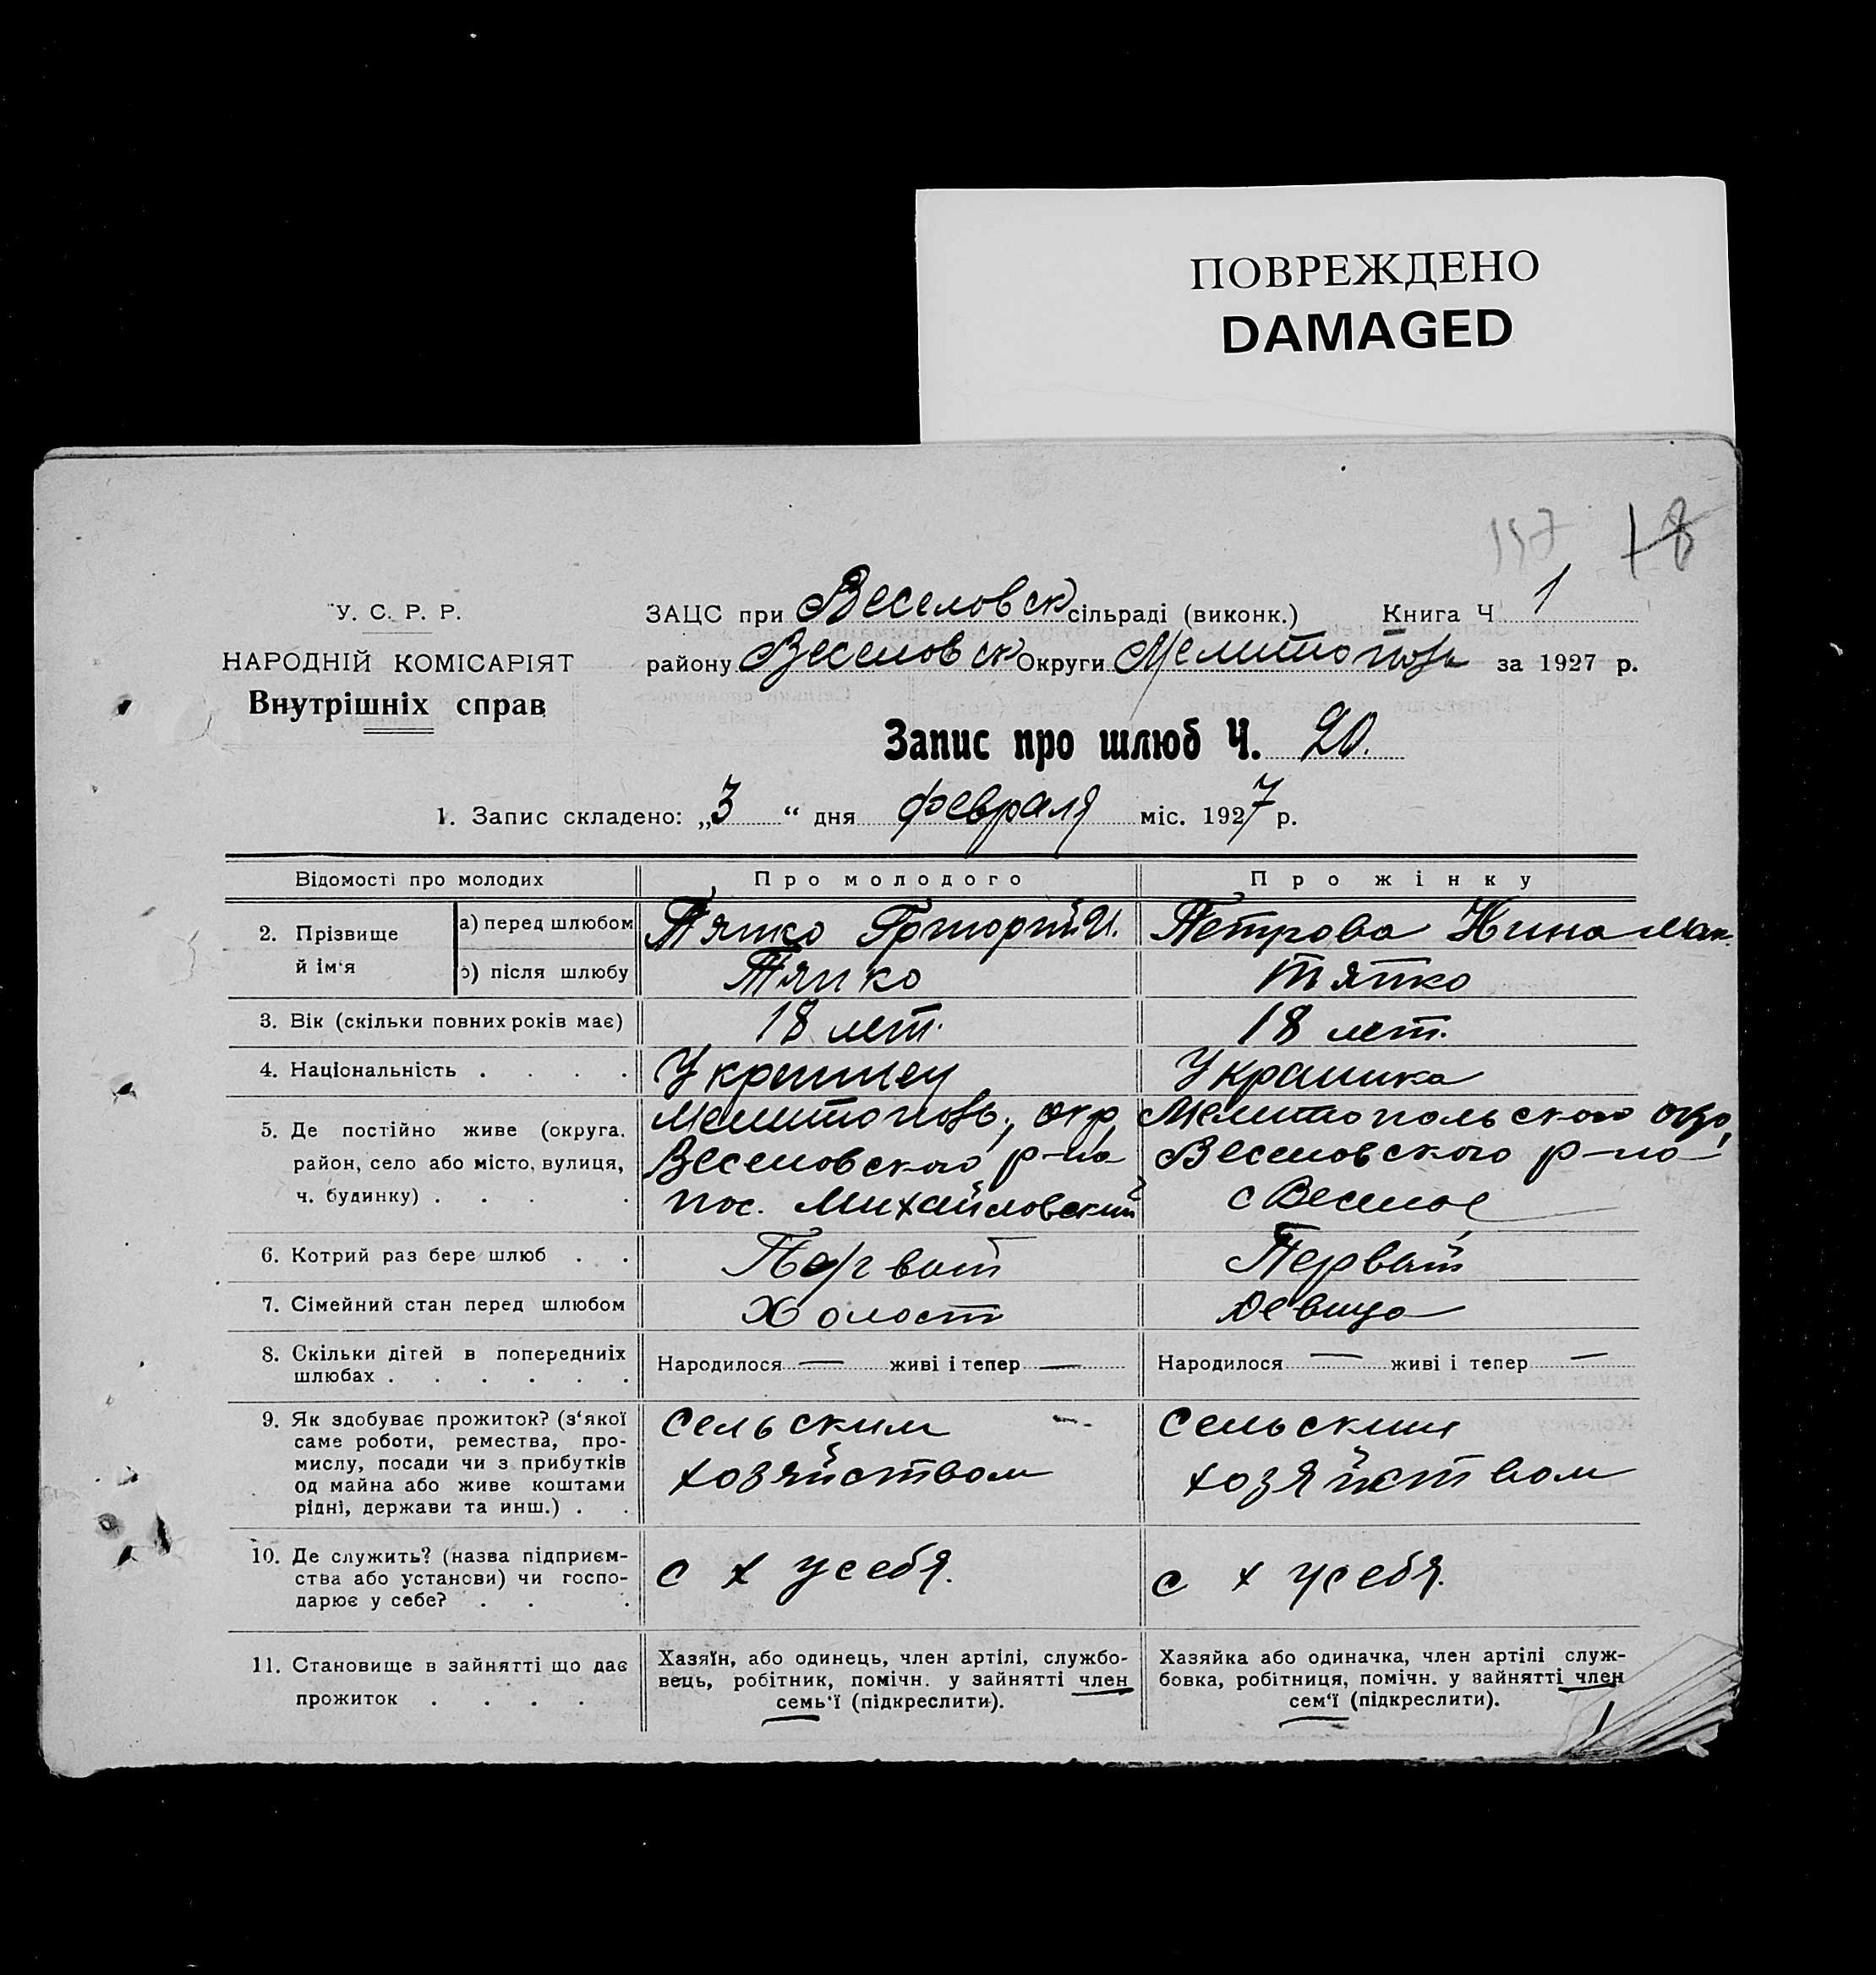 ПОВРЕЖДЕНО
DAMAGED
197 18
У. С. Р. Р.
НАРОДНІЙ КОМІСАРІЯТ
Внутрішніх справ
ЗАЦС при Веселовск сільраді (виконк.) Книга Ч 1
району Веселовск Округи Мелитополь за 1927 р.
Запис про шлюб Ч. 20.
1. Запис складено: „3 “ дня февраля міс. 1927 р.
Відомості про молодих
Про молодого
Про жінку
2. Прізвище й ім‘я
а) перед шлюбом
Григорий И.
Петрова Нина Мак.
після шлюбу
3. Вік (скільки повних років має)
18 лет.
18 лет.
4. Національність . . . .
Украинец
Украинка
5. Де постійно живе (округа.
район, село або місто, вулиця,
ч. будинку) . . . .
Мелитополь, окр,
Веселовского р-на
пос. Михайловский
Мелитопольского окр,
Веселовского р-на
с Веселое
6. Котрий раз бере шлюб . .
Первый
Первый
7. Сімейний стан перед шлюбом
Холост
Девица
8. Скільки дітей в попередниіх
шлюбах . . . . . .
Народилося — живі і тепер —
Народилося — живі і тепер —
9. Як здобуває прожиток? (з‘якої
саме роботи, ремества, про-
мислу, посади чи з прибутків
од майна або живе коштами
рідні, держави та инш.) . .
Сельским
хозяйством
Сельским
хозяйством
10. Де служить? (назва підприєм-
ства або установи) чи госпо-
дарює у себе? . . .
с х у себя.
с х у себя.
11. Становище в зайнятті що дає
прожиток . . . .
Хазяїн, або одинець, член артілі, службо-
вець, робітник, помічн. у зайнятті член
семь‘ї (підкреслити).
Хазяйка або одиначка, член артілі служ-
бовка, робітниця, помічн. у зайнятті член
сем‘ї (підкреслити).